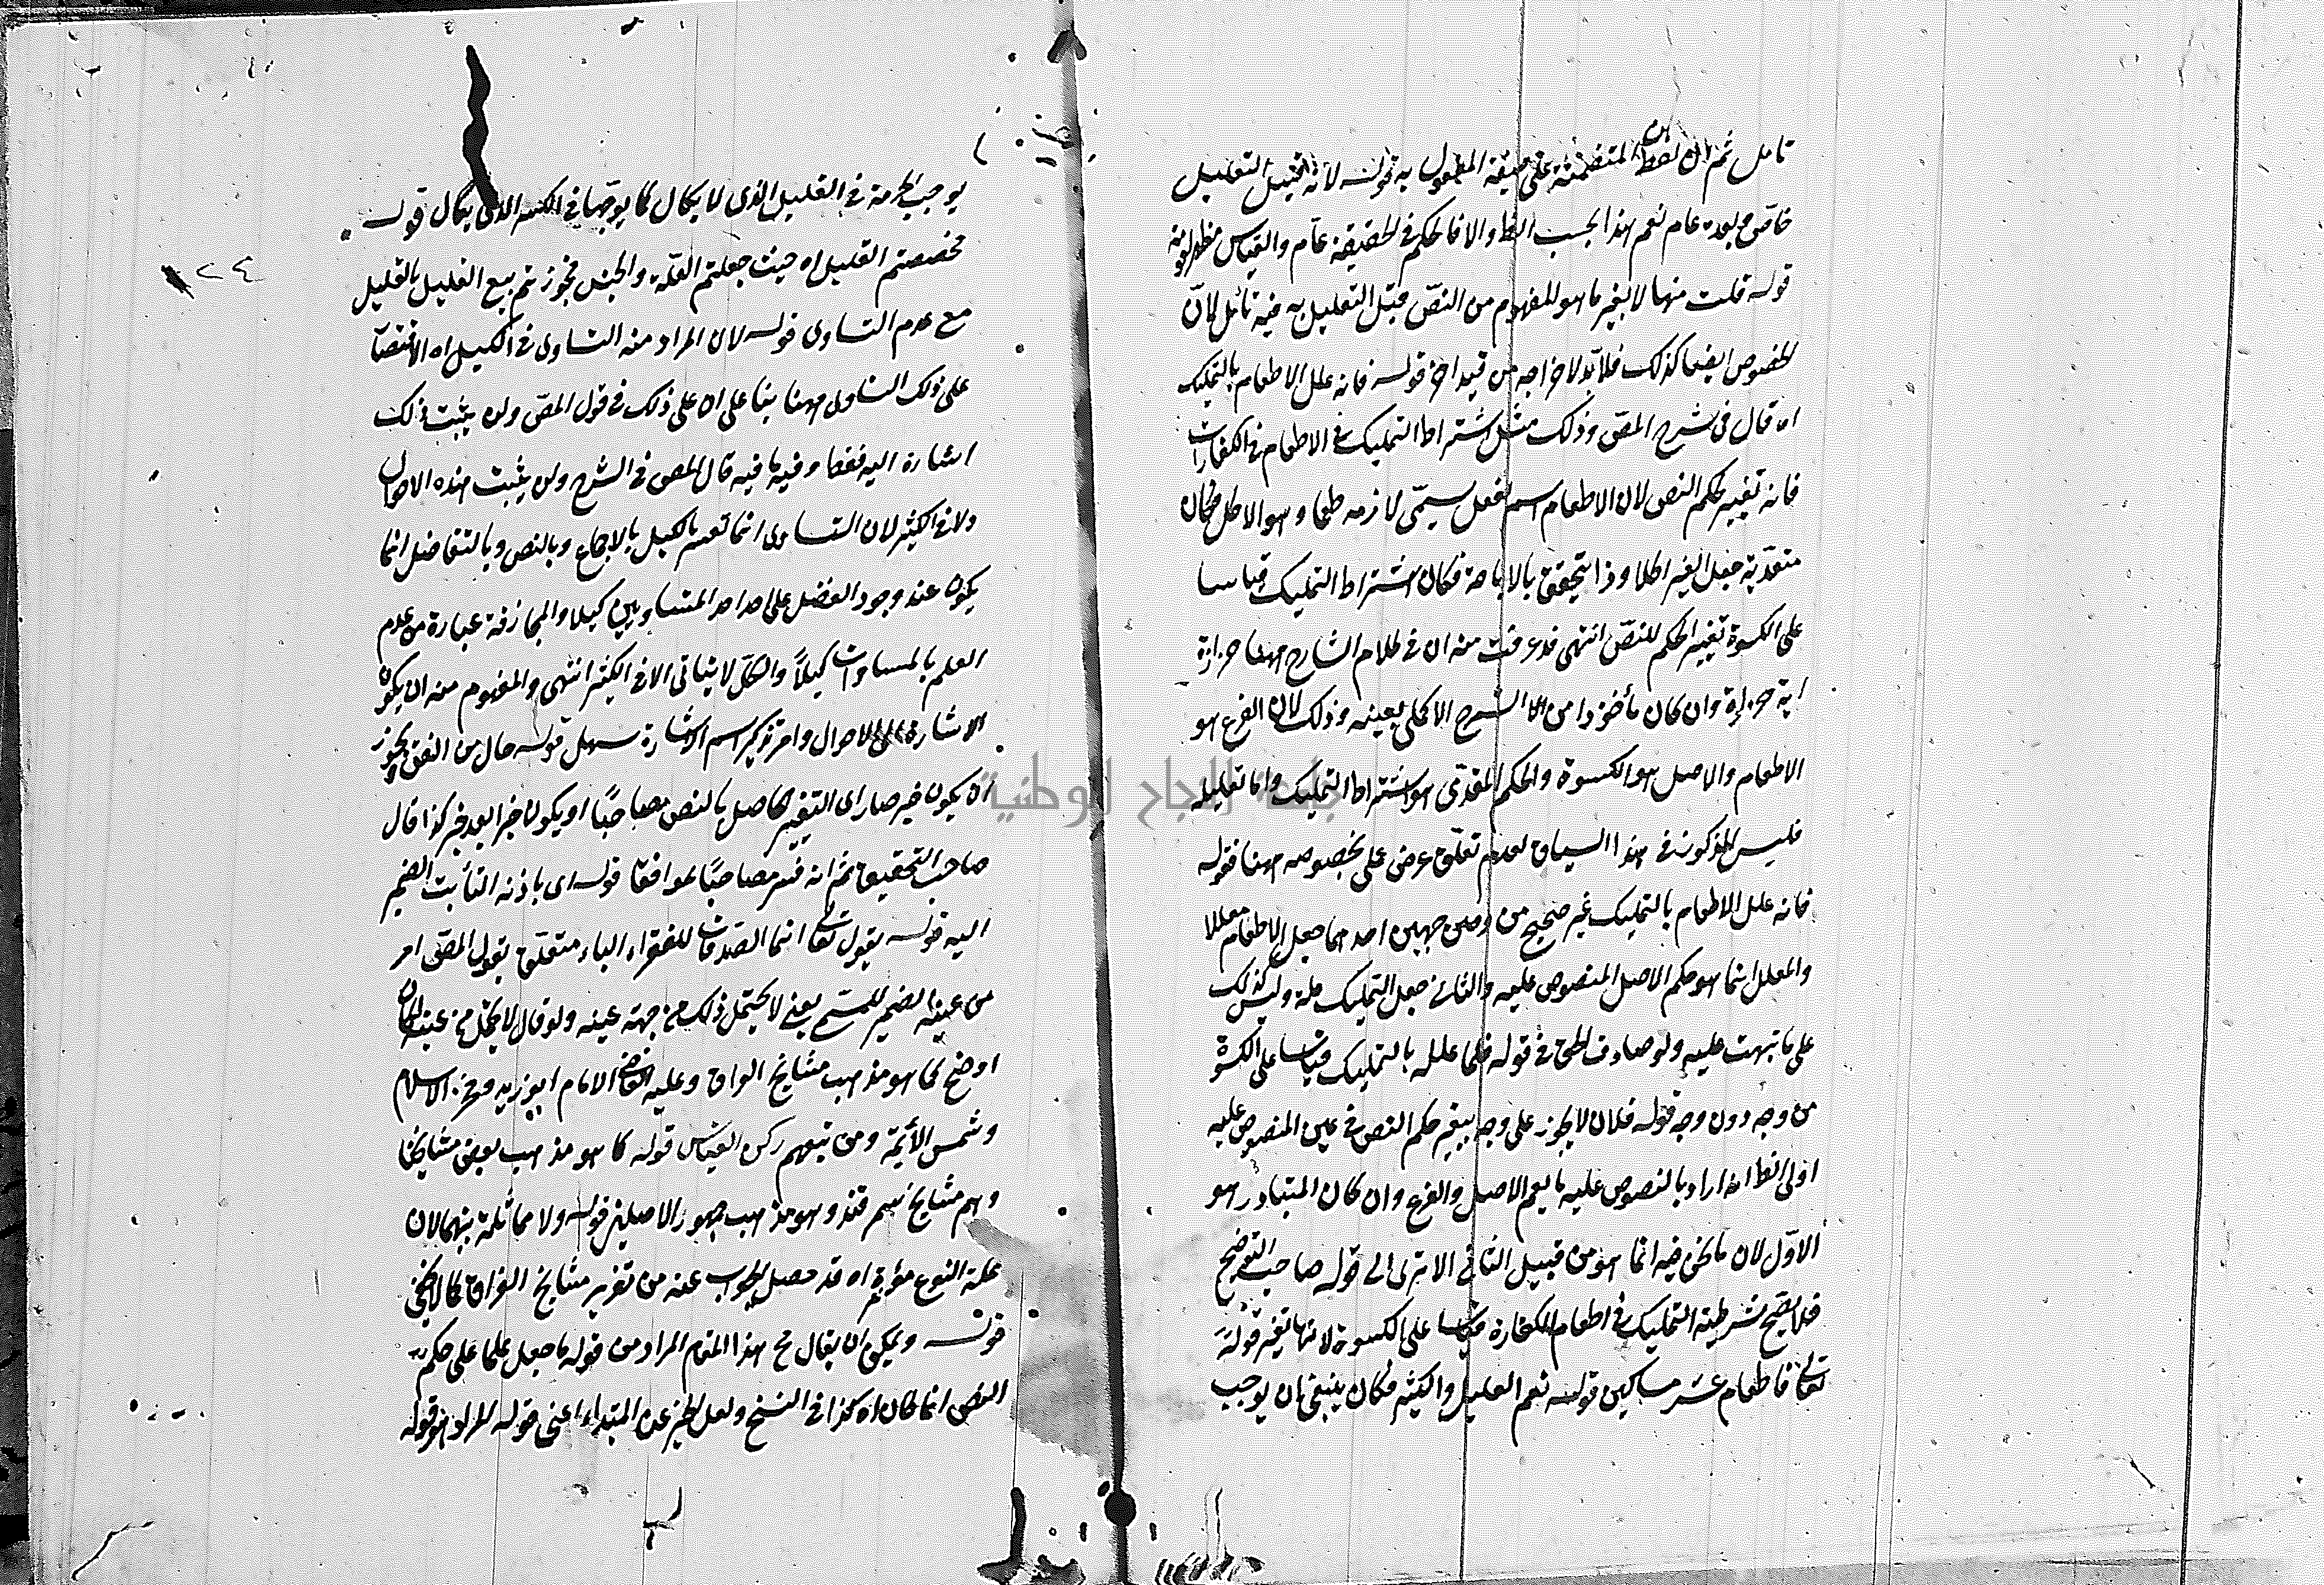 تامل ثم ان لفظ المتضمنة على صيغة المفعول به قوله لانه قبيل التعليل
خاص وبعده عام نعم هذا بحسب الظ والا فالحكم في الحقيقة عام والقياس مظهر لعمومه
قوله قلت منها لا بغير ما هو المفهوم من النص قبل التعليل به فيه تأمل لان
المخصوص ايضا كذلك فلا بد لاخراجه من قيد اخر قوله فانه علل الاطعام بالتمليك
اه قال في شرح المص وذلك مثل اشتراط التمليك في الاطعام في الكفارات
فانه تغيير لحكم النص لان الاطعام اسم لفعل يسمى لازمه طعما وهو الاكل فكان
متعديه جعل الغير اكلا وذا يتحقق بالاباحة فكان اشتراط التمليك قياسا
على الكسوة تغيير الحكم للنص انتهى قد عرفت منه ان في كلام الشارح ههنا حزازة
اية حزازة وان كان مأخوذا من الشرح الاكملي بعينه وذلك لان الفرع هو
الاطعام والاصل هو الكسوة والحكم المعدى هو اشتراط التمليك واما تعليله
فليس المذكور في هذا السياق لعدم تعلق غرض على بخصوصه ههنا فقوله
فانه علل الاطعام بالتمليك غير صحيح من وجهين احدهما جعل الاطعام معللا
والمعلل انما هو حكم الاصل المنصوص عليه والثاني جعل التمليك علة وليس كذلك
على ما نبهت عليه ولو صادف الحق في قوله فلما علل بالتمليك قياسا على الكسوة
من وجه دون وجه قوله فلان لا يجوز على وجه يغير حكم النص في عين المنصوص عليه
اولى الظ انه اراد بالمنصوص عليه ما يعم الاصل والفرع وان كان المتبادر هو
الاول لان ما نحن فيه انما هو من قبيل الثاني الا ترى الى قوله صاحب التوضيح
فلا يصح شرطية التمليك في اطعام الكفارة قياسا على الكسوة لانها تغير قوله
تعالى فاطعام عشر مساكين قوله نعم القليل والكثير فكان ينبغي ان يوجب
يوجب الحرمة في القليل الذي لا يكال كما يوجبها في الكثير الذي يكال قوله
خصصتم القليل اه حيث جعلتم العلة والجنس فجوزتم بيع القليل بالقليل
مع عدم التساوي قوله لان المراد منه التساوي في الكيل اه الاقتصار
على ذلك التساوي ههنا بنا على ان على ذلك في قول المص ولن يثبت ذلك
اشارة اليه فقط وفيه ما فيه قال المص في الشرح ولن يثبت هذه الاحوال
الا في الكثير لان التساوي انما تعسر بالكيل بالاجماع وبالنص وبالتفاضل انما
يكون عند وجود الفضل على احد المتساويين كيلا والمجازفة عبارة من عدم
العلم بالمساوات كيلا والكل لا يتأتى الا في الكثير انتهى والمفهوم منه ان يكون
الاشارة الى الاحوال وامر تذكير اسم الاشارة سهل قوله حال من النص ويجوز
ان يكون خبر صار اي التغيير الحاصل بالنص مصاحبا او يكون خبرا بعد خبر كذا قال
صاحب التحقيق ثم انه فسر مصاحبا بموافقا قوله اي باذنه الثابت الضمير
اليه قوله بقوله تعالى انما الصدقات للفقراء الباء متعلق بقول المص امر
من عينه الضمير للمستحق يعني لا يحتمل ذلك من جهة عينه ولو قال لا يحتمل من عينه لكان
اوضح كما هو مذهب مشايخ العراق وعليه القاضي الامام ابو زيد وفخر الاسلام
وشمس الأئمة ومن تبعهم ركن القياس قوله كما هو مذهب بعض مشايخنا
وهم مشايخ سمرقند وهو مذهب جمهور الاصليين قوله ولا مماثلة بينهما لان
علة النوع مؤثرة اه قد حصل الجواب عنه من تقرير مشايخ العراق كما لا يخفى
قوله ويمكن ان يقال في هذا المقام المراد من قوله ما جعل علما على حكم
النص انما كان اه كذا في النسخ ولعل الخبر عن المبتدأ اعني قوله المراد هو قوله
١٢٤
جامعة النجاح الوطنية